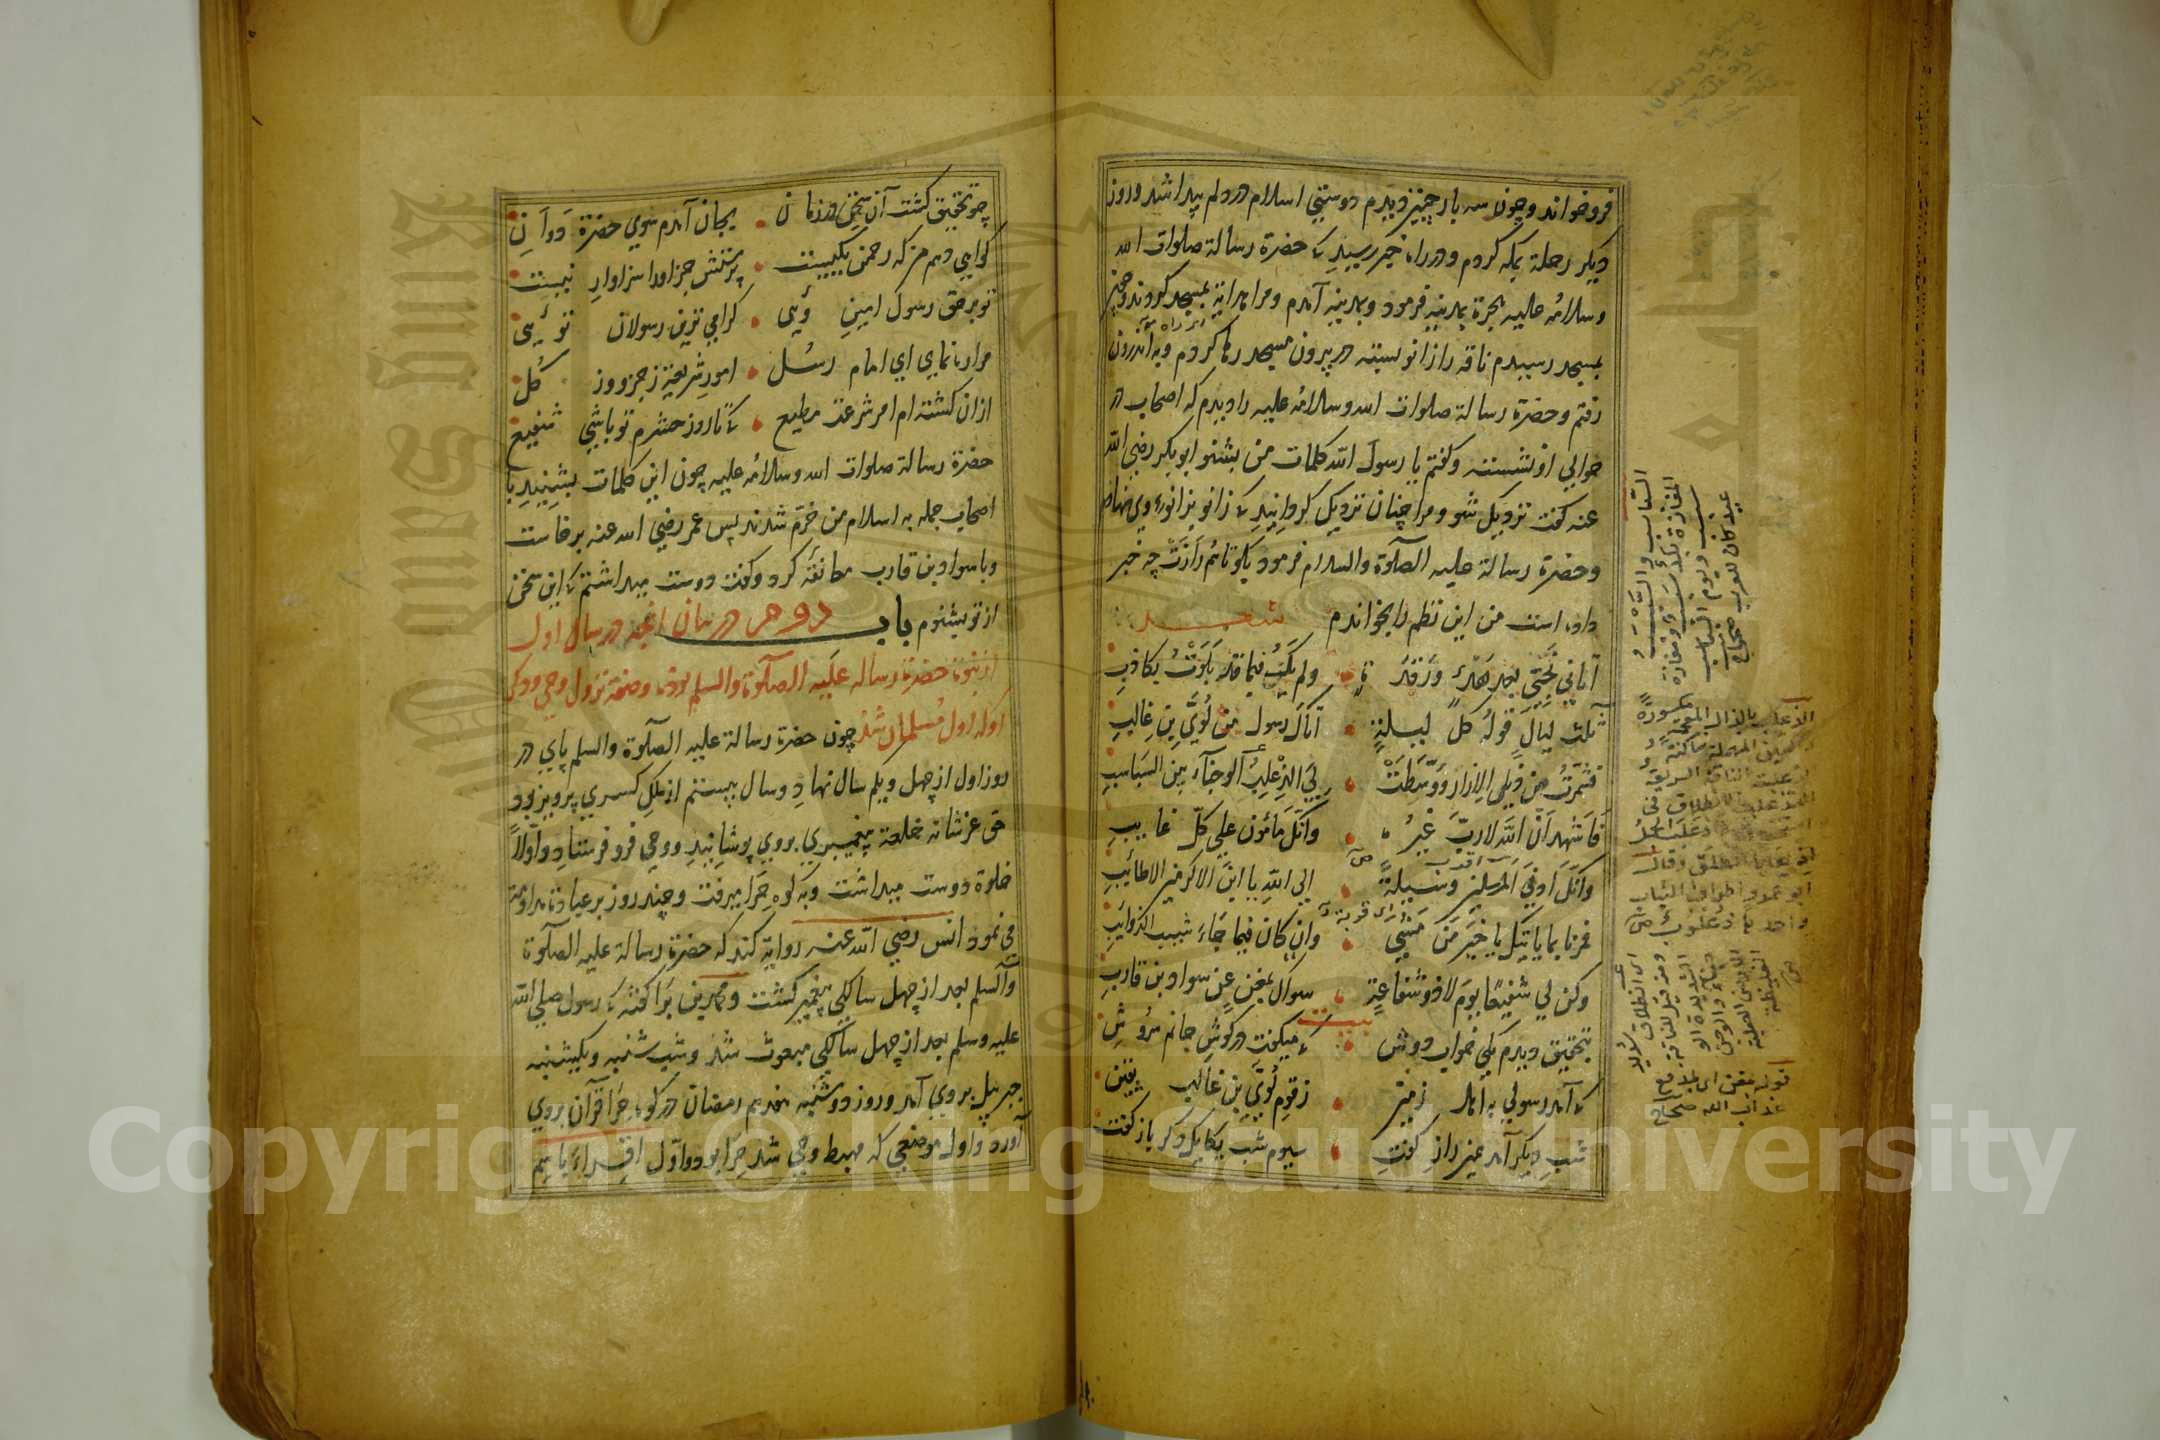 فروخواند و چون سه بار چنین دیدم دوستی اسلام در دلم پیدا شد و روز
دیگر رحلة بمکه کردم و در راه خبر رسید که حضرة رسالة صلوات الله
وسلامه علیه هجرة بمدینه فرمود و بمدینه آمدم و مرا هدایة بمسجد کردند و چون
بمسجد رسیدم ناقه را زانو بسته در بیرون مسجد رها کردم و به اندرون
رفتم و حضرة رسالة صلوات الله وسلامه علیه را دیدم که اصحاب در
حوالی او نشسته و گفتم یا رسول الله کلمات من بشنو ابو بکر رضی الله
عنه گفت نزدیک شو و مرا چنان نزدیک گردانید که زانو بزانوء وی نهادم
وحضرة رسالة علیه الصلوة والسلام فرمود بگو تا
داده است من این نظم را بخواندم شعر
أتاني نجيي بعد هدء ورقدة ولم یکن فیما قد بلوت بکاذب
ثلث لیال قوله کل لیلة أتاک رسول من لؤي بن غالب
فشمرت من ذیلي الازار ووسطت بي الذعلب الوجناء بین السباسب
فأشهد أن الله لا رب غیره وانک مأمون علی کل غایب
وأنک أدنی المرسلین وسیلة الی الله یا ابن الاکرمین الاطائب
فمرنا بما یأتیک یا خیر من مشی وان کان فیما جاء شیب الذوائب
وکن لي شفیعا یوم لا ذو شفاعة سواک بمغن عن سواد بن قارب
بیت
بتحقیق دیدم یکی خواب دوش که میگفت در گوش جانم سروش
که آمد رسولی به اهل زمین ز قوم لؤی بن غالب یقین
شب دیگر آمد همین راز گفت سیوم شب یکایک دگر باز گفت
السباسب
المفازة بلد سبسب و مفازة
سبسب ویوم السباسب
عید کان للعرب صحاح
الذعلب بالذال المعجمة مکسورة
والعین المهملة ساکنة
الناقة السریعة
ابو عمرو اطراف الثیاب
واحدها ذعلوب
قوله بمغن ای بدافع
عذاب الله صحاح
چو تحقیق گشت آن سخن در زمان بجان آمدم سوی حضرة دوان
گواهی دهم من که رحمن یکیست پرستش جز او را سزاوار نیست
تو بر حق رسول امین وئی گرامی ترین رسولان توئی
مرا ره نمای ای امام رسل امور شریعة ز جزو و ز کل
از آن گشته ام امر شرعت مطیع که تا روز حشرم تو باشی شفیع
حضرة رسالة صلوات الله وسلامه علیه چون این کلمات بشنید با
اصحاب جمله به اسلام من خرم شدند پس عمر رضی الله عنه برخاست
و با سواد بن قارب معانقه کرد و گفت دوست میداشتم که این سخن
از تو بشنوم باب دوم در بیان آنچه در سال اول
از نبوة حضرة رساله علیه الصلوة والسلم بوده وصفة نزول وحی وذکر
آنکه اول مسلمان شد چون حضرة رسالة علیه الصلوة والسلم پای در
روز اول از چهل ویکم سال نهاد و سال بیستم از ملک کسری پرویز بود
حق عز شانه خلعة پیغمبری بروی پوشانید و وحی فرو فرستاد و اولا
خلوة دوست میداشت و به کوه حرا میرفت و چند روز بر عبادة مداومة
می نمود انس رضی الله عنه روایة کند که حضرة رسالة علیه الصلوة
والسلم بعد از چهل سالگی پیغمبر گشت و محمد بن گفته که رسول صلی الله
علیه وسلم بعد از چهل سالگی مبعوث شد و شب شنبه و یکشنبه
جبرییل بر وی آمد و روز دوشنبه هفدهم رمضان در کوه حرا قرآن بروی
آورد و اول موضعی که مهبط وحی شد حرا بود و اول اقراء باسم
Copyright © King Saud University